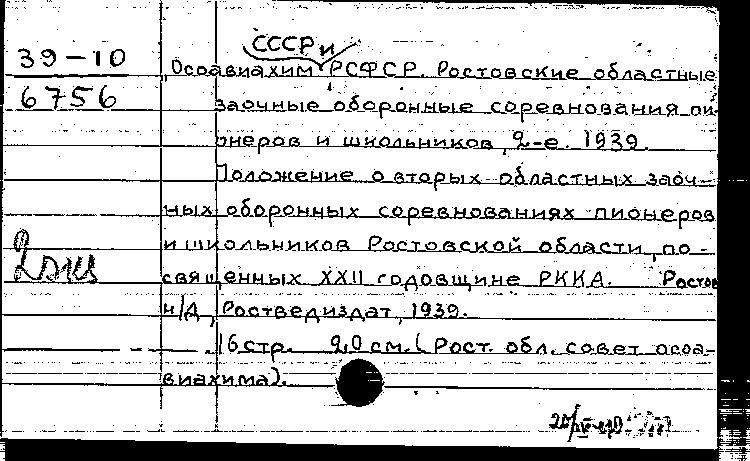 39-10
6756
2 экз
СССР и
Осоавиахим РСФСР. Ростовские областные
заочные оборонные соревнования пи-
онеров и школьников, 2-е. 1939.
Положение о вторых областных заоч-
ных оборонных соревнованиях пионеров
и школьников Ростовской области, по-
священных XXII годовщине РККА. Ростов
н/Д, Ростведиздат, 1939.
16 стр. 20 см. (Рост. обл. совет осоа-
виахима).